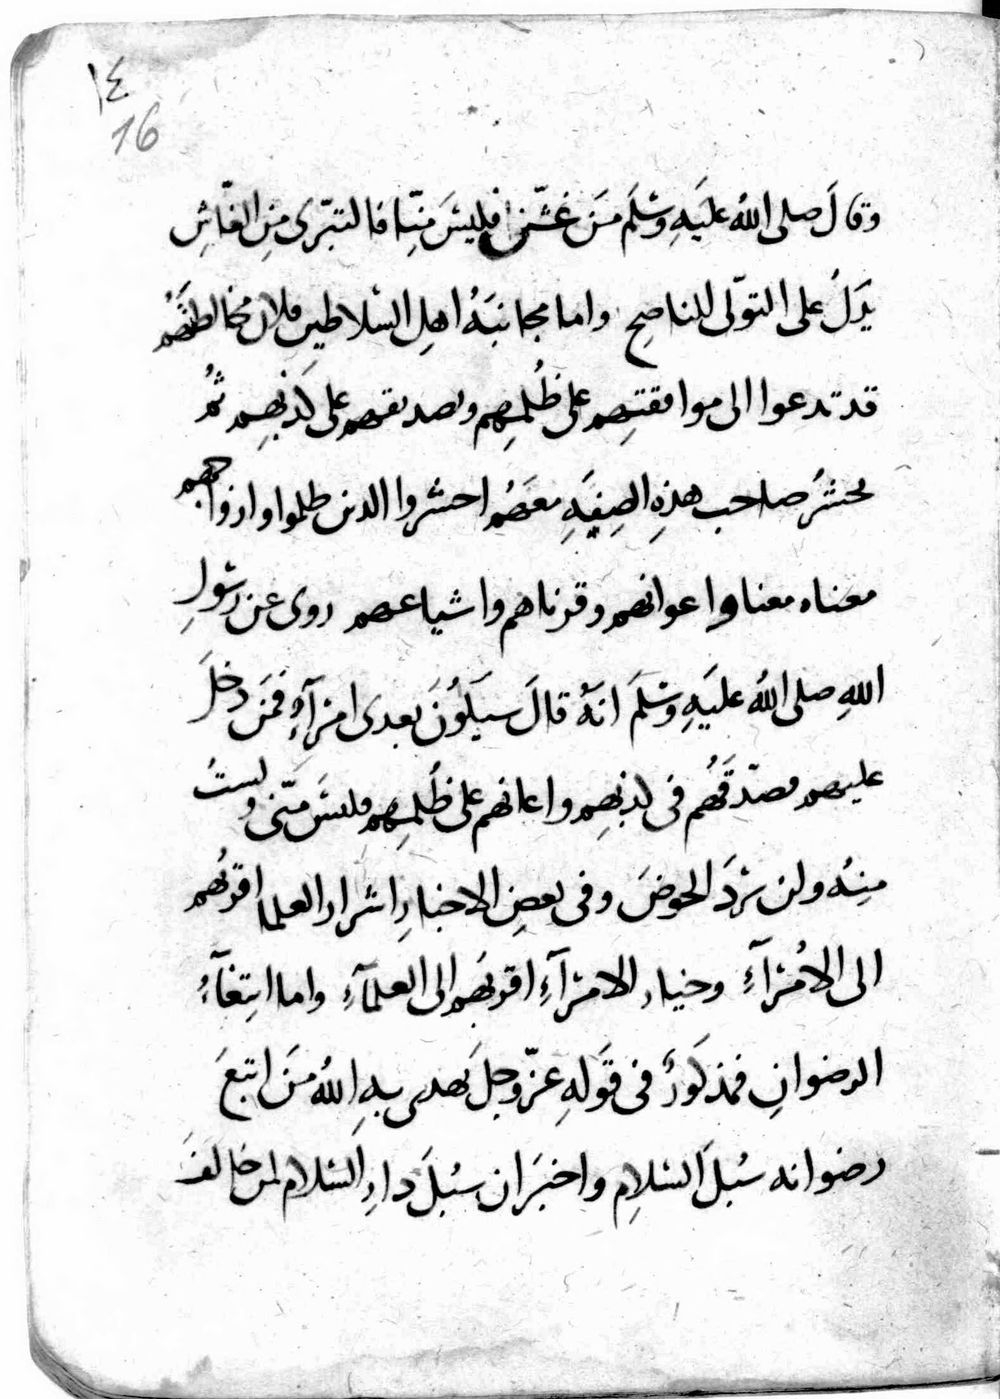 ١٤
16
وقالَ صلى اللهُ عليَهِ وسَلَم مَن غشّنى فليسَ مِنّا فالتبرّى مِن الغّاشِ
يَدلُ على التوّلى للناصحِ واما مجانبَةُ اهلِ السلاطينِ فلان مخالطتهُم
قد تدعوا الى موافقتِهم على ظُلمِهم وتصديقهم على كذبِهِم ثمُ
يحشرُ صاحب هذهِ الصِفَهِ معَهُم احشروا الذين ظلموا وازواجهم
معناه معنا واعوانهم وقرناهم واشياعهم روى عن رسُولِ
اللهِ صلى اللهُ عليَهِ وسَلَمَ انَهُ قالَ سيَكُونَ بعدى امرآءِ فمَن دخلَ
عليهم فصدّقَهُم فى كذبِهِم واعانهم على ظُلمِهِم فليسَ منّى ولستُ
مِنهُ ولن يَردَ الحوضَ وفى بعضِ الاخبارِ اشرار العلما اقربُهم
الى الامُرآءِ وخيار الامرآءِ اقربهَم الى العلمآءِ واما ابتِغآءُ
الرضوانِ فمذكَورٌ فى قَولِهِ عزّ وجلَ يَهدى بهِ اللهُ مَن اتبعَ
رضوانه سُبلَ السَلامِ واخبَر ان سُبلَ دارِ السَلام لمن خالفَ